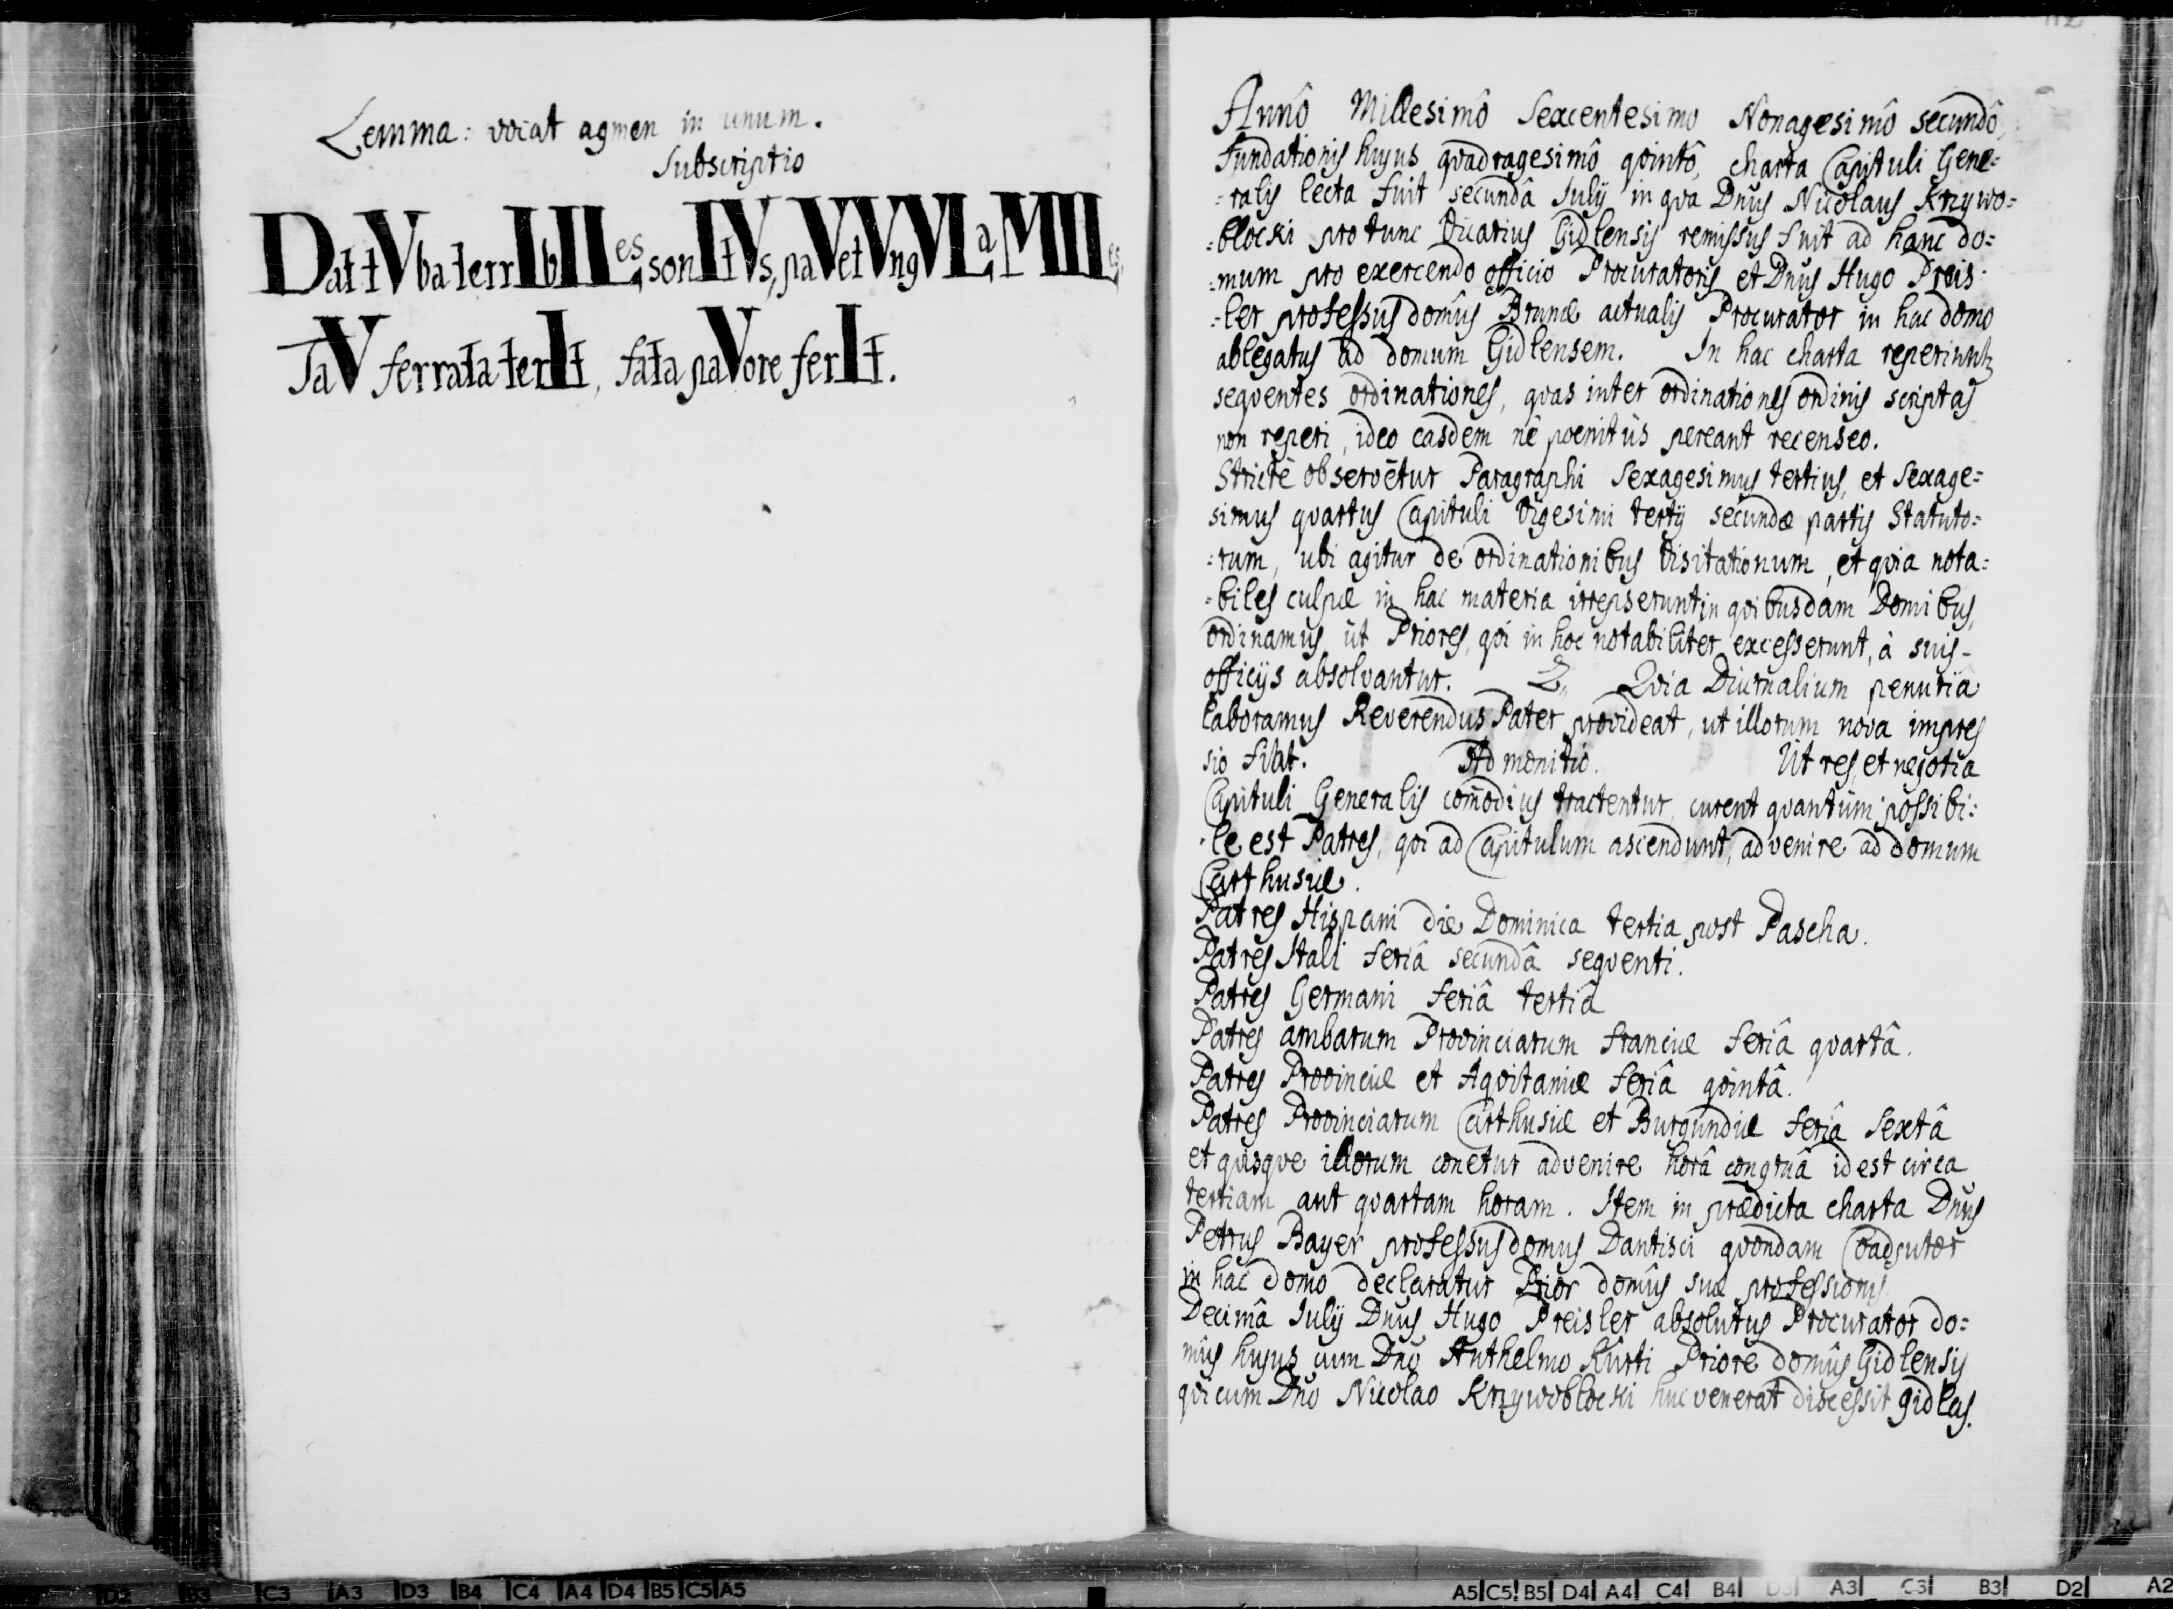 Lemma: vocat agmen in unum.
Subscriptio
Dat tVba terrIbILes, sonItVs, paVet VngVLa, MILes,
TaV ferrata terIt, fata paVore ferIt.
Annô Millesimô Sexcentesimo Nonagesimô secundô,
fundationis hujus qvadragesimô qvintô, charta Capituli Gene=
=ralis lecta fuit secundâ Julij in qva Dnus Nicolaus Krzywo=
=blocki pro tunc Vicarius Gidlensis remissus fuit ad hanc do=
=mum pro exercendo officio Procuratoris et Dnus Hugo Preis=
=ler professus domûs Brunæ actualis Procurator in hac domo
ablegatus ad domum Gidlensem. In hac charta reperiuntur
seqventes ordinationes, qvas inter ordinationes ordinis scriptas
non reperi, ideo easdem nè poenitùs pereant recenseo.
Strictè observētur Paragraphi Sexagesimus tertius, et Sexage=
simus qvartus Capituli Vigesimi tertij secundæ partis Statuto=
=rum, ubi agitur de ordinationibus Visitationum, et qvia nota=
=biles culpæ in hac materia irrepserunt in qvibusdam Domibus,
ordinamus, ùt Priores, qvi in hoc notabiliter excesserunt, à suis
officijs absolvantur. 2. Qvia Diurnalium penuria
laboramus Reverendus Pater provideat, ut illorum nova impres
sio fiat. Admonitio. Ut res, et negotia
Capituli Generalis comodius tractentur, curent qvantùm possibi=
=le est Patres, qvi ad Capitulum ascendunt, advenire ad domum
Carthusiæ.
Patres Hispani die Dominica tertia post Pascha.
Patres Itali feriâ secundâ seqventi.
Patres Germani feriâ tertiâ
Patres ambarum Provinciarum Franciæ feriâ qvartâ.
Patres Provinciæ et Aqvitaniæ feriâ qvintâ.
Patres Provinciarum Carthusiæ et Burgundiæ feriâ Sextâ
et qvisqve illorum conetur advenire horâ congruâ id est circa
tertiam aut qvartam horam. Item in prædicta charta Dnus
Petrus Bayer professus domus Dantisci qvondam Coadjutor
in hac domo declaratur Prior domûs suæ professionis.
Decimâ Julij Dnus Hugo Preisler absolutus Procurator do=
mûs hujus cum Dno Anthelmo Kurti Priore domûs Gidlensis
qvi cum Dno Nicolao Krzywoblocki huc venerat discessit Gidlas.